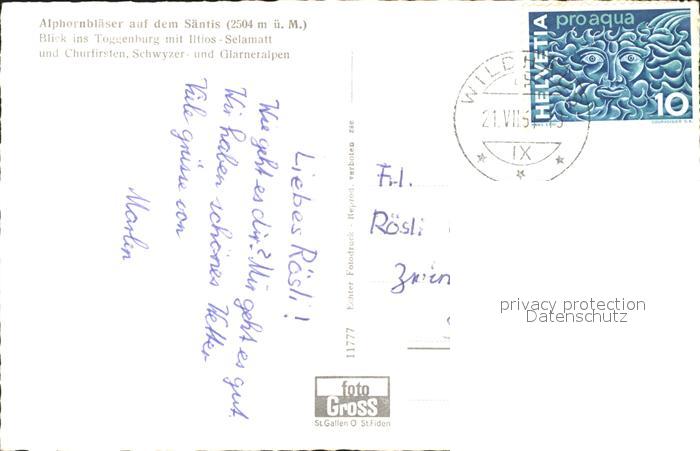 Alphornbläser auf dem Säntis (2504 m ü. M.)
Blick ins Toggenburg mit Iltios-Selamatt
und Churfirsten, Schwyzer- und Glarneralpen
HELVETIA
pro aqua
10
WILD
21.VII.6
IX
Liebes Rösli!
Wie geht es dir? Mir geht es gut.
Wir haben schönes Wetter
Viele grüsse von
Marlen
11777 Echter Fotodruck - Reprod. verboten
Frl.
Rösli
privacy protection
Datenschutz
foto
Gross
St.Gallen O St.Fiden